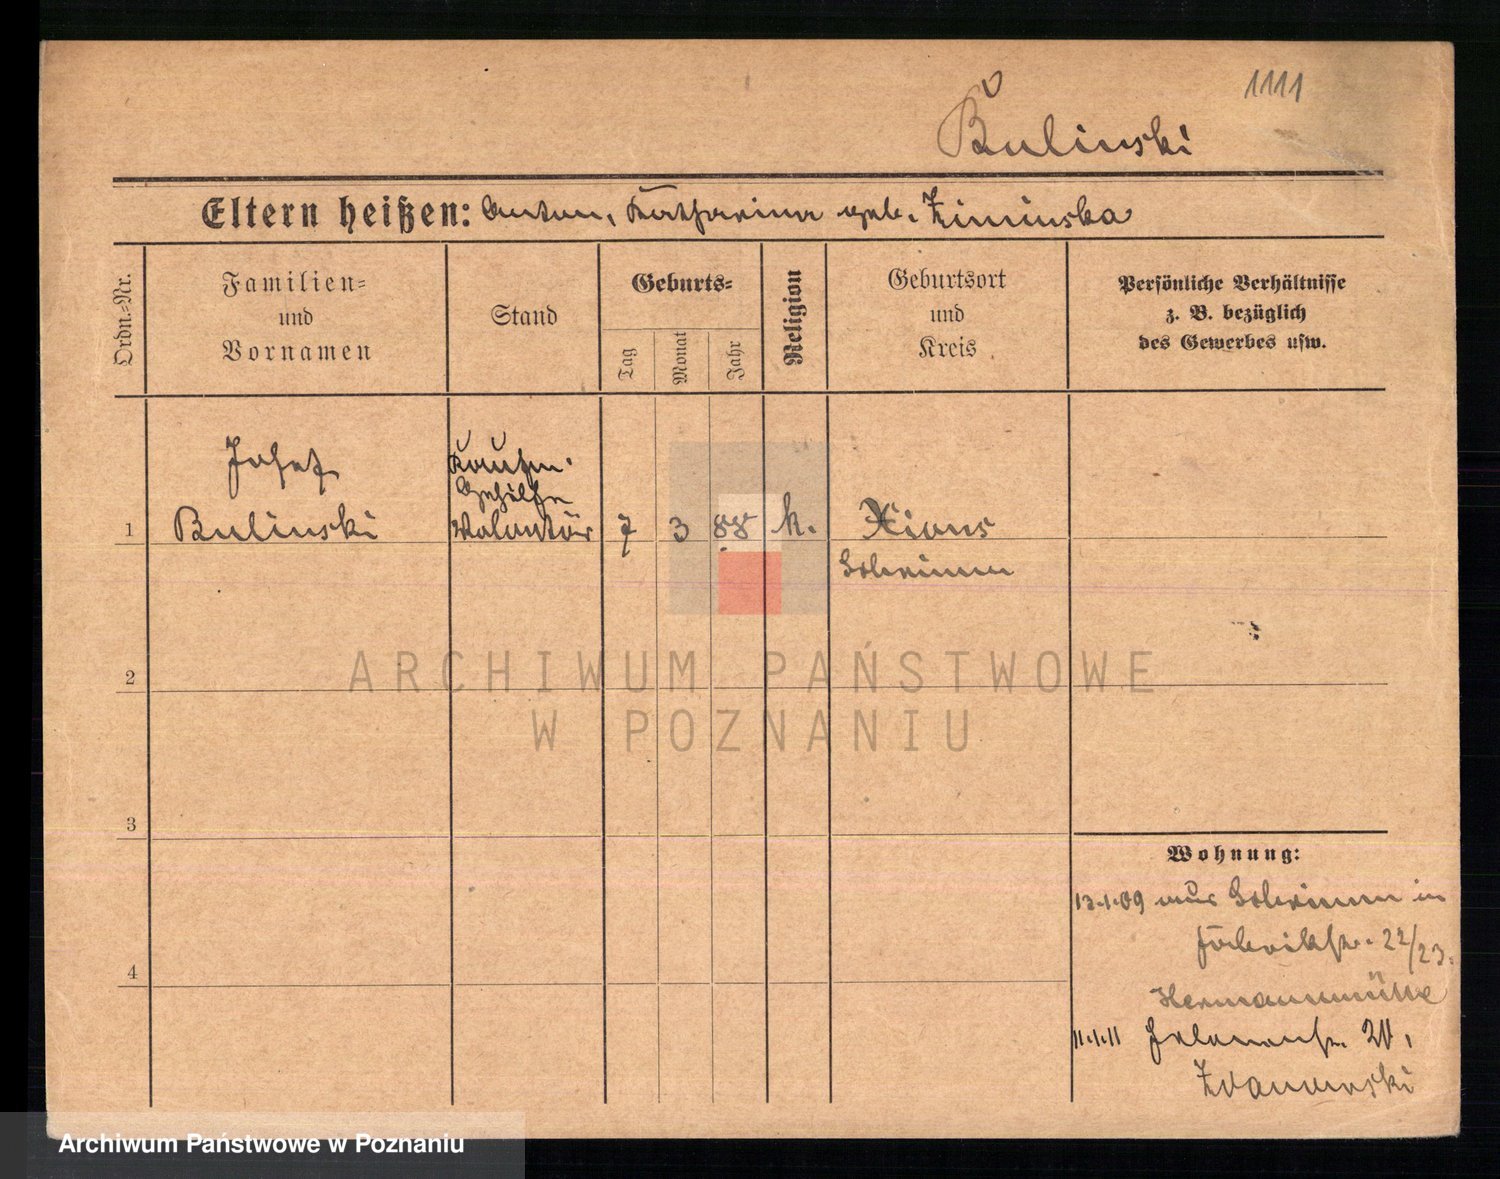 1111
Bulinski
Eltern heißen: Anton, Katharina geb. Ziminska
Ordn.-Nr.
Familien-
und
Vornamen
Stand
Geburts-
Tag
Monat
Jahr
Religion
Geburtsort
und
Kreis
Persönliche Verhältnisse
z. B. bezüglich
des Gewerbes usw.
Josef
Kaufm.
Gehilfe
1 Bulinski Volontär 7 3 88 k. Xions
Schrimm
2
ARCHIWUM PAŃSTWOWE
W POZNANIU
3
Wohnung:
13.1.09 aus Schrimm in
22/23.
4
Hermannmühle
11.1.11 20,
Archiwum Państwowe w Poznaniu